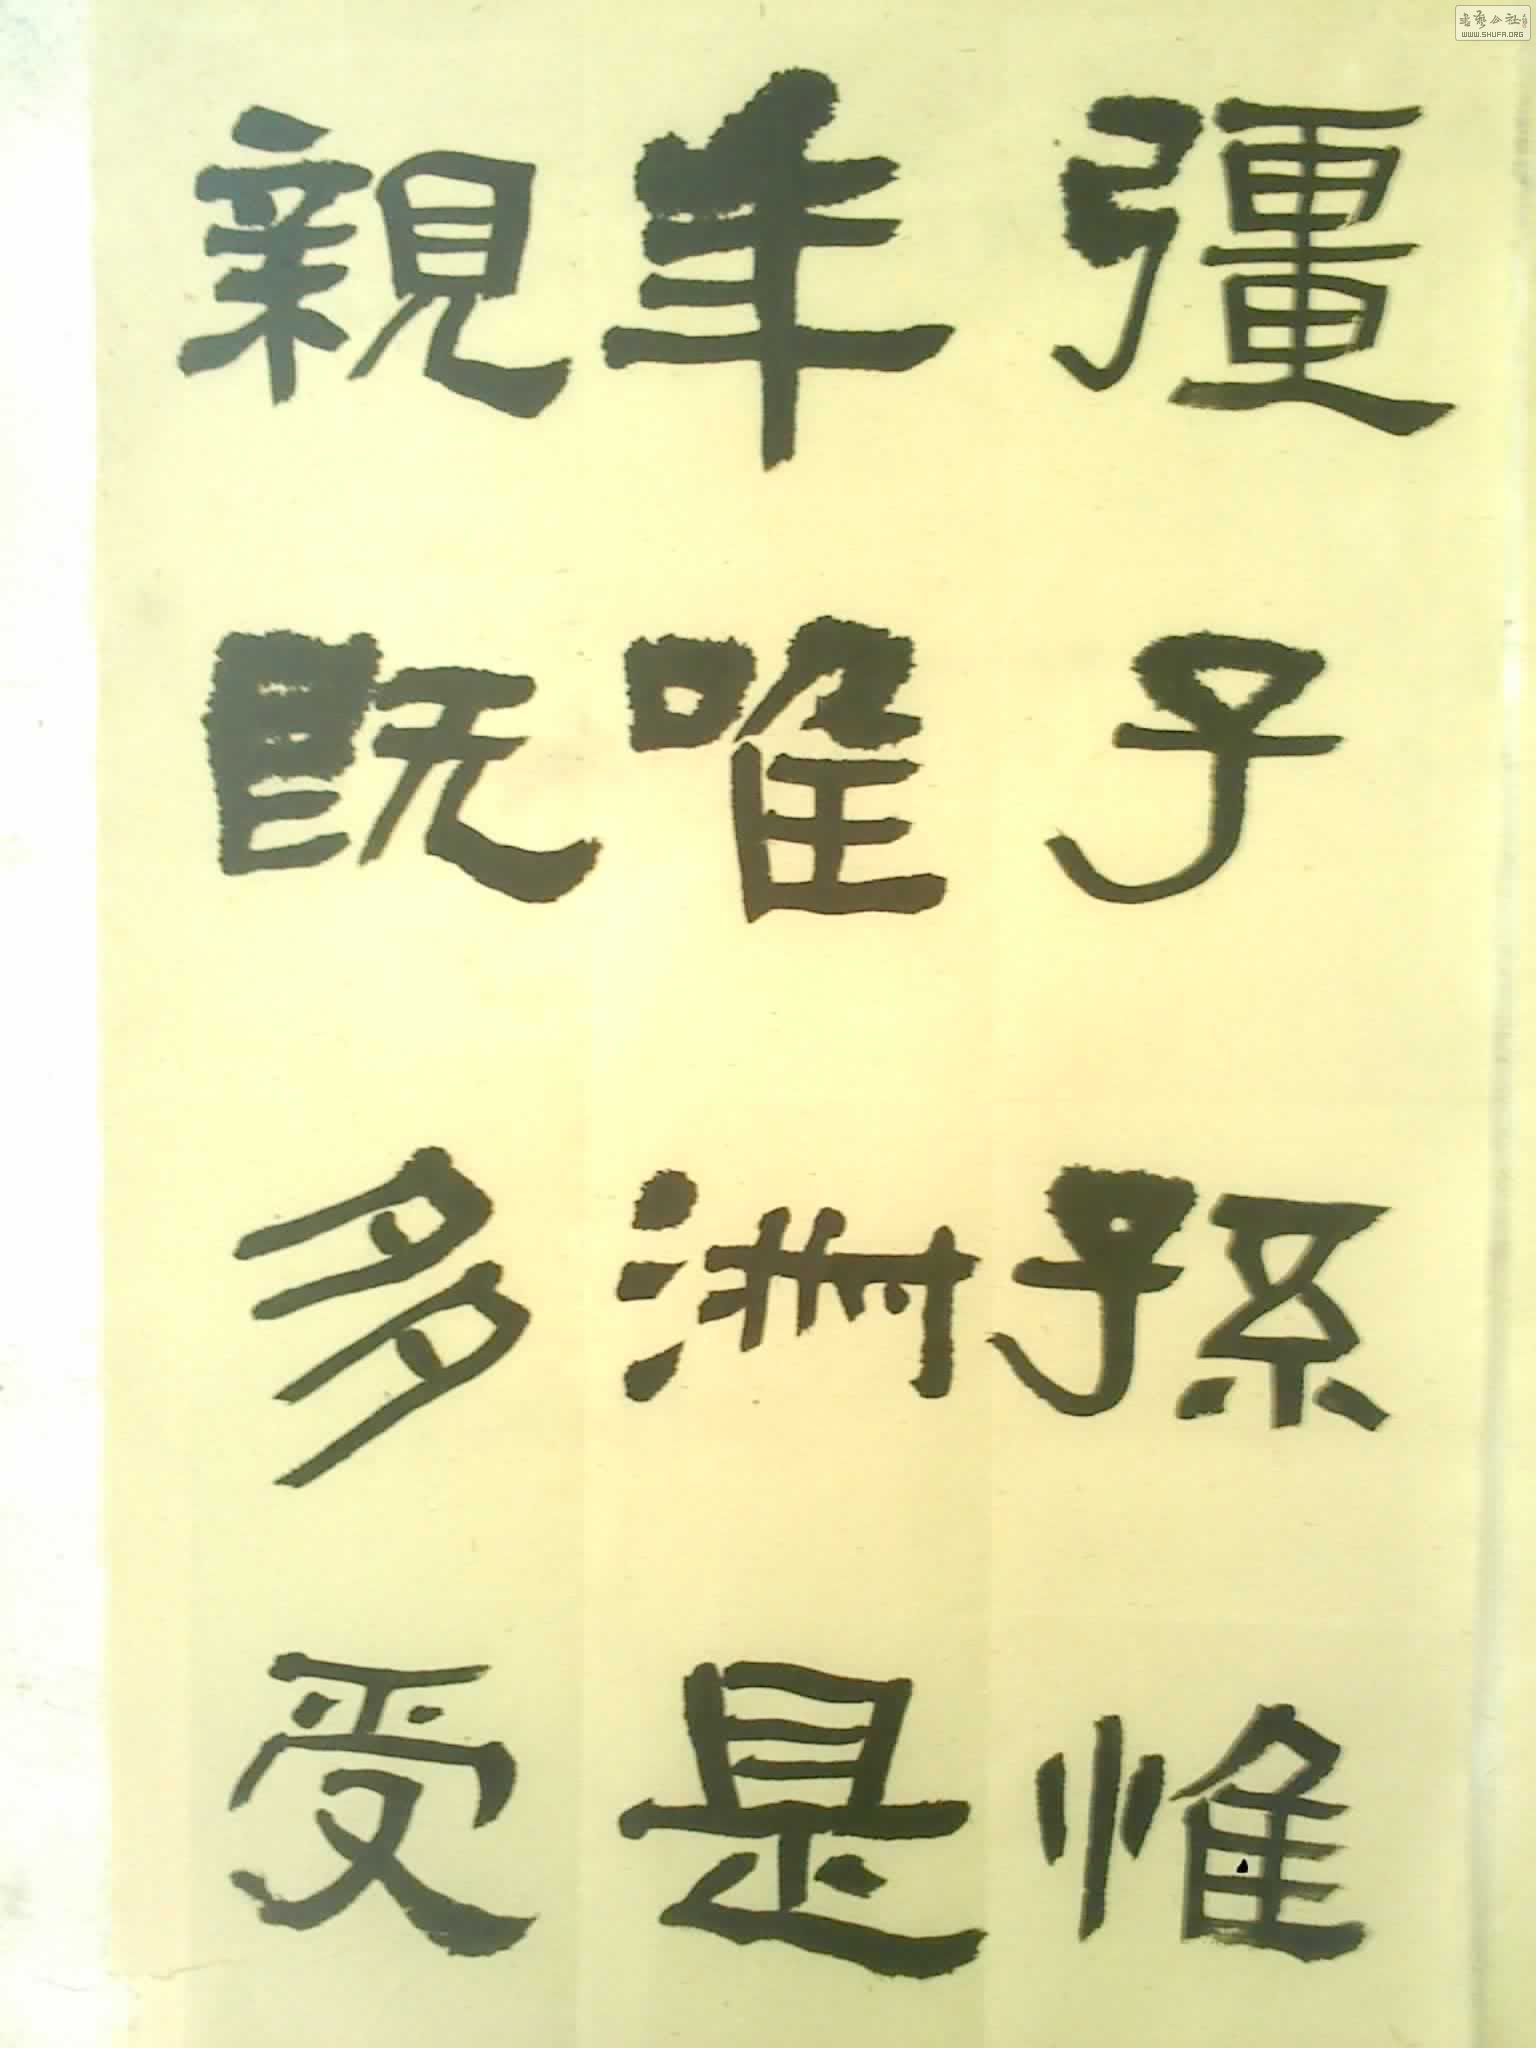 彊子孫惟
年唯是
親既多受
書藝公社
WWW.SHUFA.ORG